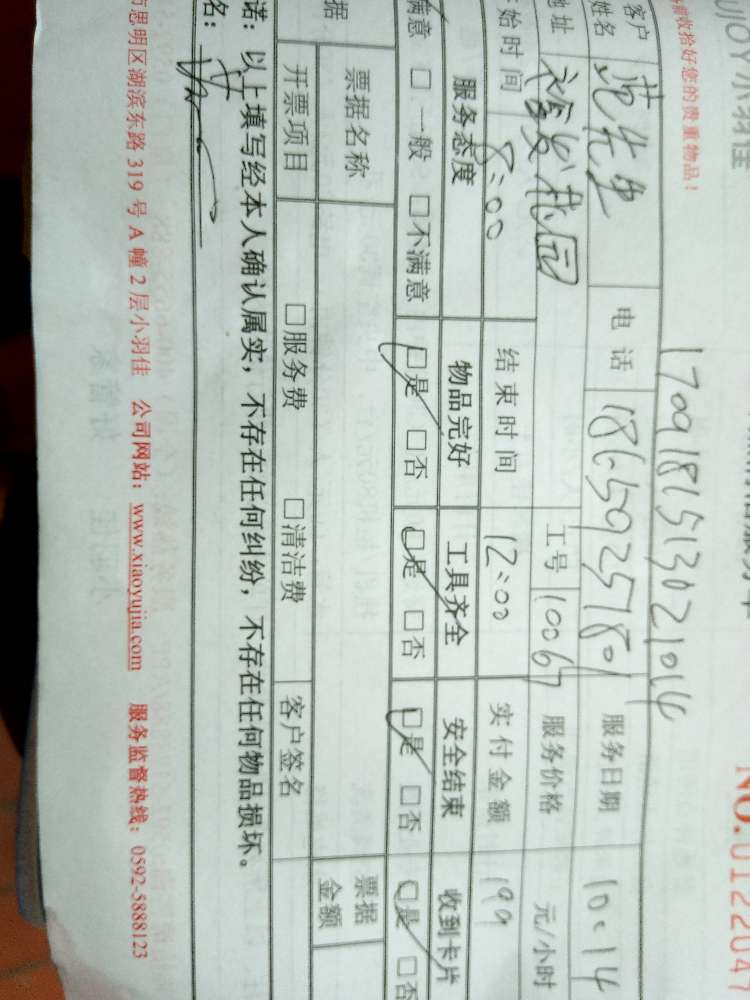 小羽佳
收拾好您的贵重物品！
NO.0122047
1709186513021014
客户姓名 范先生 电话 18659257801 服务日期 10.14
地址 裕发花园 工号 10067 服务价格 元/小时
始时间 8:00 结束时间 12:00 实付金额 199
服务态度 物品完好 工具齐全 安全结束 收到卡片
满意 □一般 □不满意 □是 □否 □是 □否 □是 □否 □是 □否
据 票据名称 票据金额
开票项目 □服务费 □清洁费 客户签名
诺：以上填写经本人确认属实，不存在任何纠纷，不存在任何物品损坏。
名：
思明区湖滨东路 319 号 A 幢 2 层小羽佳 公司网站：www.xiaoyujia.com 服务监督热线：0592-5888123